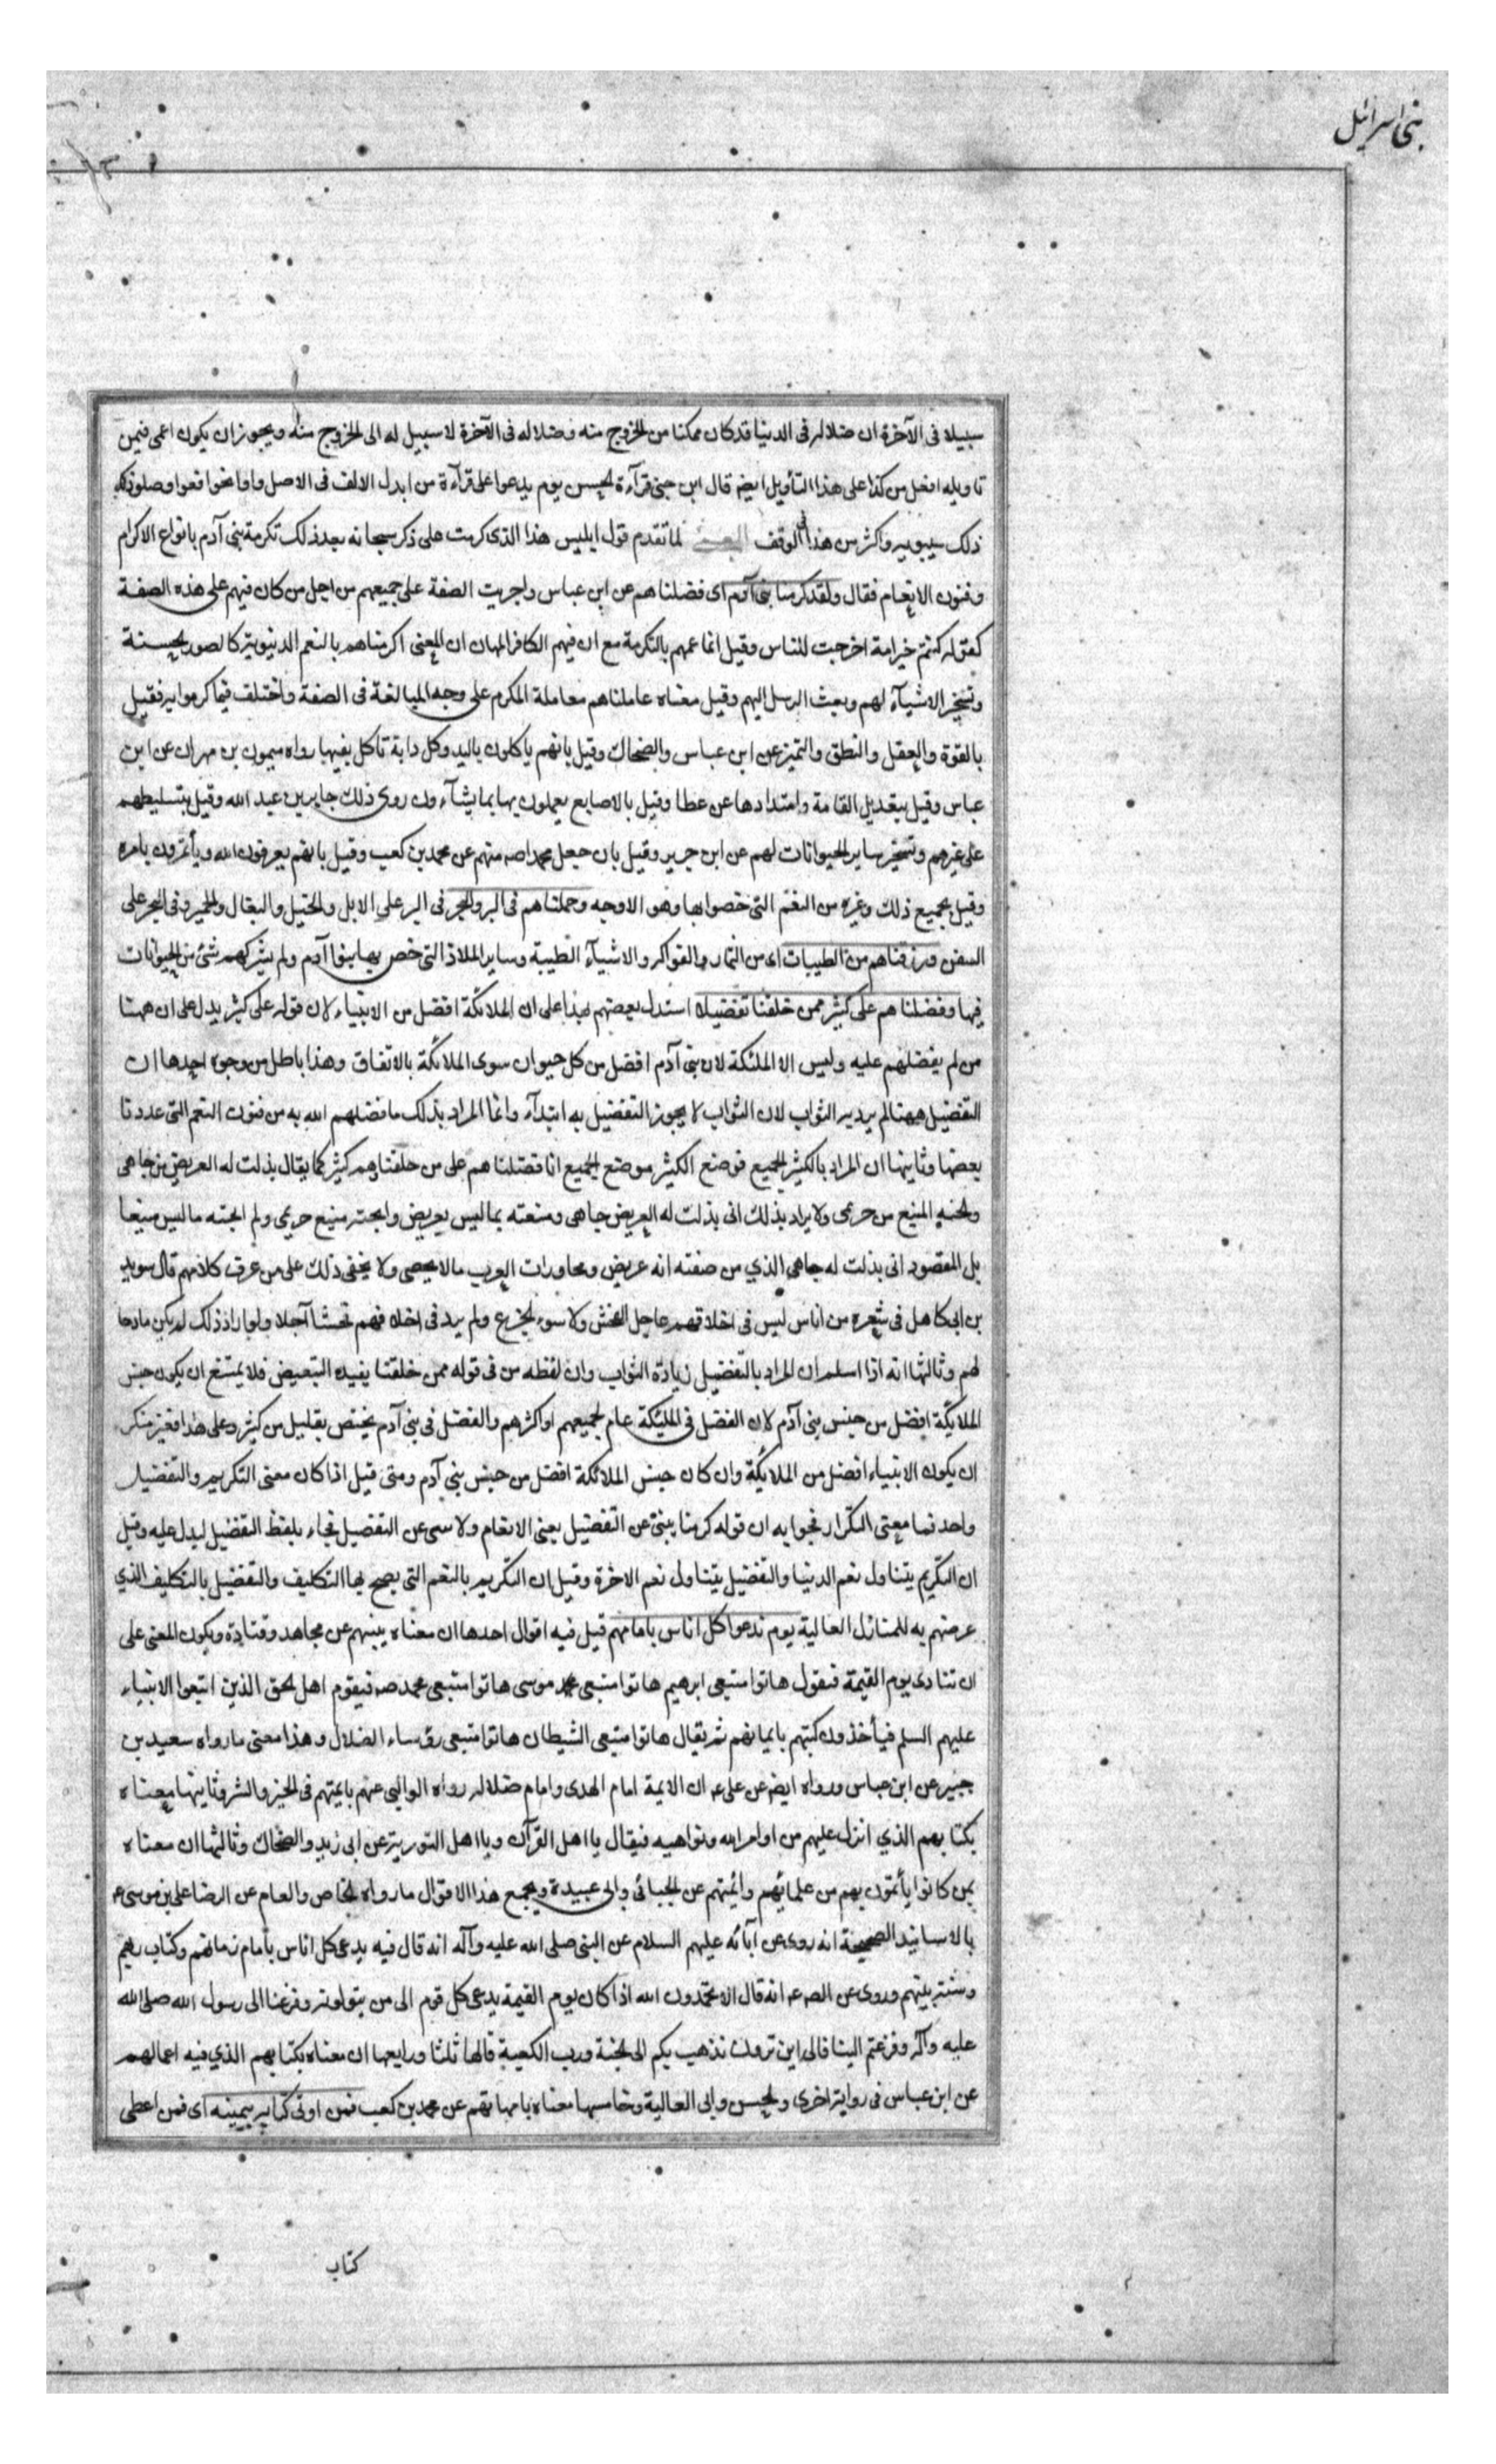 بنی اسرائیل
سبيلا فى الآخرة ان ضلاله فى الدنيا قد كان ممكنا من الخروج منه وضلاله فى الآخرة لا سبيل له الى الخروج منه ويجوز ان يكون اعمى فيمن
تاويله افعل من كذا على هذا التأويل ايضم قال ابن جنى قرآءة الحسن يوم يدعوا على قرآءة من ابدل الالف فى الاصل واوا نحوا فعوا وصلو ذكر
ذلك سيبويه واكثر من هذا فى الوقف لما تقدم قول ابليس هذا الذى كرمت على ذكر سبحانه بعد ذلك تكرمة بنى آدم بانواع الاكرام
وفنون الانعام فقال ولقد كرمنا بنى آدم اى فضلناهم عن ابن عباس واجريت الصفة على جميعهم من اجل من كان فيهم على هذه الصفة
كقوله كنتم خير امة اخرجت للناس وقيل انما عمهم بالتكرمة مع ان فيهم الكافر المهان ان المعنى اكرمناهم بالنعم الدنيوية كالصور الحسنة
وتسخير الاشيآء لهم وبعث الرسل اليهم وقيل معناه عاملناهم معاملة المكرم على وجه المبالغة فى الصفة واختلف فيما كرموا به فقيل
بالقوة والعقل والنطق والتميز عن ابن عباس والضحاك وقيل بانهم ياكلون باليد وكل دابة تاكل بفيها رواه ميمون بن مهران عن ابن
عباس وقيل بتعديل القامة وامتدادها عن عطا وقيل بالاصابع يعملون بها بما يشآءون روى ذلك جابر بن عبد الله وقيل بتسليطهم
على غيرهم وتسخير ساير الحيوانات لهم عن ابن جرير وقيل بان جعل محمدا صه منهم عن محمد بن كعب وقيل بانهم يعرفون الله ويأتمرون بامره
وقيل بجميع ذلك وغيره من النعم التى خصوا بها وهو الاوجه وحملناهم فى البر والبحر فى البر على الابل والخيل والبغال والحمير وفى البحر على
السفن ورزقناهم من الطيبات اى من الثمار والفواكه والاشيآء الطيبة وساير الملاذ التى خص بها بنوا آدم ولم يشركهم شئ من الحيوانات
فيها وفضلناهم على كثير ممن خلقنا تفضيلا استدل بعضهم بهذا على ان الملائكة افضل من الانبياء لان قوله على كثير يدل على ان ههنا
من لم يفضلهم عليه وليس الا الملئكة لان بنى آدم افضل من كل حيوان سوى الملائكة بالاتفاق وهذا باطل من وجوه احدها ان
التفضيل ههنا لم يرد به الثواب لان الثواب لا يجوز التفضيل به ابتدآء وانما المراد بذلك ما فضلهم الله به من فنون النعم التى عددنا
بعضها وثانيها ان المراد بالكثير الجميع فوضع الكثير موضع الجميع انا فضلناهم على من خلقنا وهم كثير كما يقال بذلت له العريض من جاهى
وابحته المنيع من حريمى ولا يراد بذلك انى بذلت له العريض جاهى ومنعته بما ليس بعريض وابحته منيع حريمى ولم ابحته ما ليس منيعا
بل المقصود انى بذلت له جاهى الذي من صفته انه عريض ومحاورات العرب ما لا يحصى ولا يخفى ذلك على من عرف كلامهم قال سويد
بن ابى كاهل فى شعره من اناس ليس فى اخلاقهم عاجل الفحش ولا سوء الجزع ولم يرد فى اخلاقهم فحشا آجلا ولو اراد ذلك لم يكن مادحا
لهم وثالثها انه اذا اسلم ان المراد بالتفضيل زيادة الثواب وان لفظه من فى قوله ممن خلقنا يفيد التبعيض فلا يمتنع ان يكون جنس
الملائكة افضل من جنس بنى آدم لان الفضل فى الملئكة عام لجميعهم او اكثرهم والفضل فى بنى آدم يختص بقليل من كثير وعلى هذا فغير منكر
ان يكون الانبياء افضل من الملائكة وان كان جنس الملائكة افضل من جنس بنى آدم ومتى قيل اذا كان معنى التكريم والتفضيل
واحد فما معنى التكرار فجوابه ان قوله كرمنا ينبئ عن التفضيل بمعنى الانعام ولا سى عن التفضيل فجاء بلفظ التفضيل ليدل عليه وقيل
ان التكريم يتناول نعم الدنيا والتفضيل يتناول نعم الاخرة وقيل ان التكريم بالنعم التى يصح بها التكليف والتفضيل بالتكليف الذي
عرضهم به للمنازل العالية يوم ندعوا كل اناس بامامهم قيل فيه اقوال احدها ان معناه بنبيهم عن مجاهد وقتادة ويكون المعنى على
ان تنادى يوم القيمة فيقول هاتوا متبعى ابرهيم هاتوا متبعى موسى هاتوا متبعى محمد صه فيقوم اهل الحق الذين اتبعوا الانبياء
عليهم السلم فيأخذون كتبهم بايمانهم ثم يقال هاتوا متبعى الشيطان هاتوا متبعى رؤساء الضلال وهذا معنى ما رواه سعيد بن
جبير عن ابن عباس ورواه ايضم عن على عم ان الايمة امام الهدى وامام ضلاله رواه الوالبى عنهم بايمتهم فى الخير والشر وثانيها معناه
بكتابهم الذي انزل عليهم من اوامر الله ونواهيه فيقال يا اهل القرآن ويا اهل التوريه عن ابى زيد والضحاك وثالثها ان معناه
بمن كانوا يأتمون بهم من علمائهم وائمتهم عن الجبائى وابى عبيدة ويجمع هذا الاقوال ما رواه الخاص والعام عن الرضا على بن موسى عم
بالاسانيد الصحيحة انه روى عن آبآئه عليهم السلام عن النبى صلى الله عليه وآله انه قال فيه يدعى كل اناس بامام زمانهم وكتاب ربهم
وسنة نبيهم وروى عن الصه عم انه قال الا تحمدون الله اذا كان يوم القيمة يدعى كل قوم الى من يتولونه وفزعنا الى رسول الله صلى الله
عليه وآله وفزعتم الينا فالى اين ترون نذهب بكم الى الجنة ورب الكعبة قالها ثلثا ورابعها ان معناه بكتابهم الذي فيه اعمالهم
عن ابن عباس فى رواية اخرى والحسن وابى العالية وخامسها معناه بامهاتهم عن محمد بن كعب فمن اوتى كتابه بيمينه اى فمن اعطى
كتاب